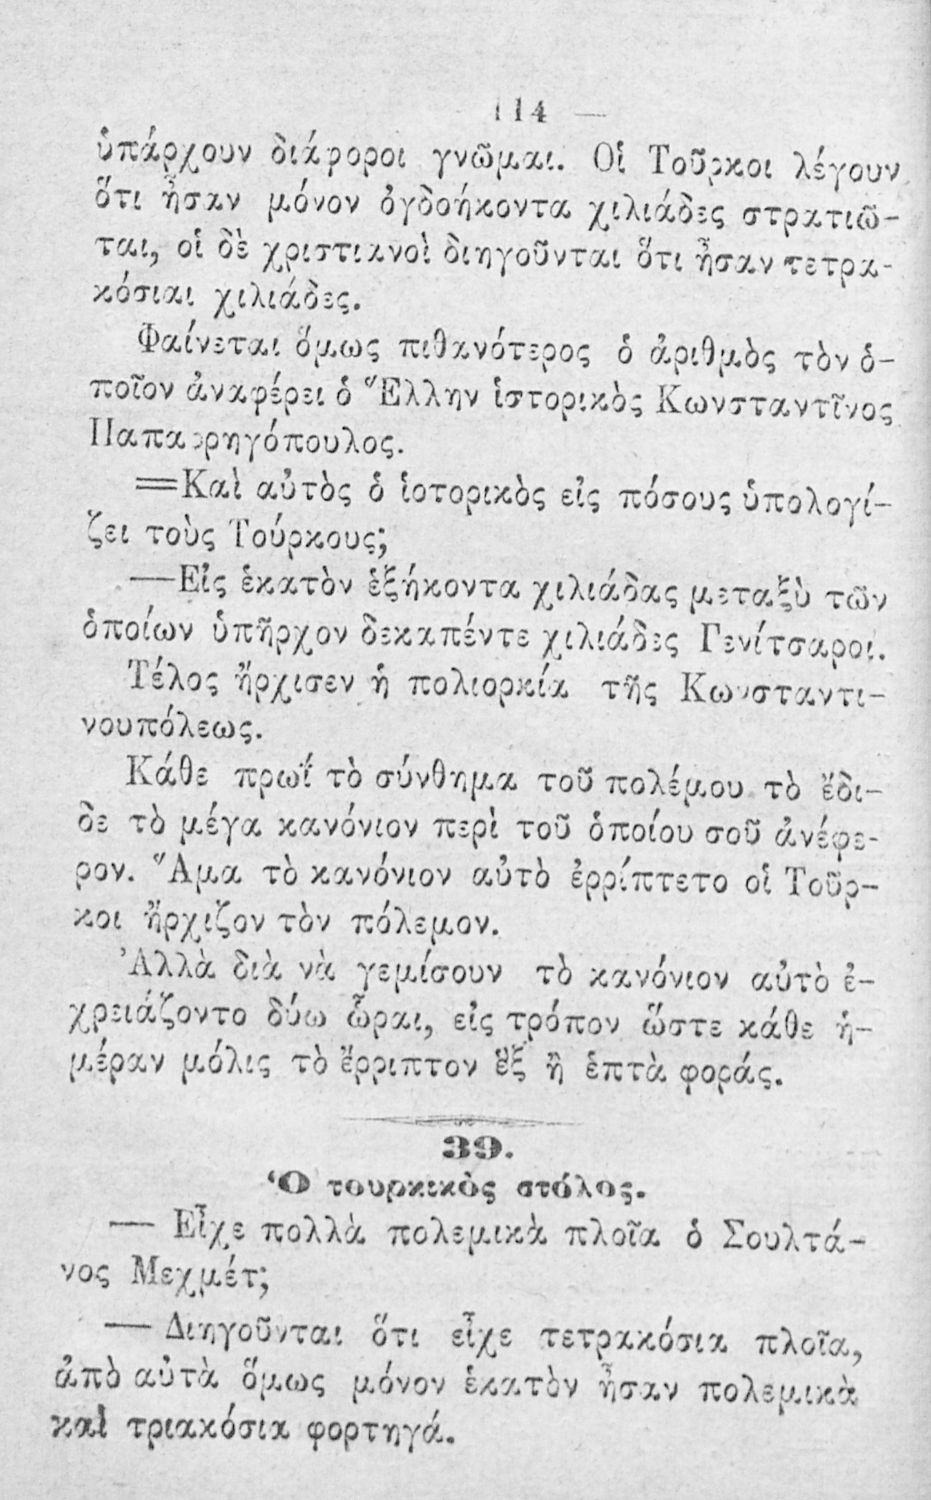 114 —
ὑπάρχουν διάφοροι γνῶμαι. Οἱ Τοῦρκοι λέγουν
ὅτι ἦσαν μόνον ὀγδοήκοντα χιλιάδες στρατιῶ-
ται, οἱ δὲ χριστιανοὶ διηγοῦνται ὅτι ἦσαν τετρα-
κόσιαι χιλιάδες.
Φαίνεται ὅμως πιθανότερος ὁ ἀριθμὸς τὸν ὁ-
ποῖον ἀναφέρει ὁ Ἕλλην ἱστορικὸς Κωνσταντῖνος
Παπαρρηγόπουλος.
=Καὶ αὐτὸς ὁ ἱοτορικὸς εἰς πόσους ὑπολογί-
ζει τοὺς Τούρκους;
—Εἰς ἑκατὸν ἑξήκοντα χιλιάδας μεταξὺ τῶν
ὁποίων ὑπῆρχον δεκαπέντε χιλιάδες Γενίτσαροι.
Τέλος ἤρχισεν ἡ πολιορκία τῆς Κωνσταντι-
νουπόλεως.
Κάθε πρωΐ τὸ σύνθημα τοῦ πολέμου τὸ ἔδι-
δε τὸ μέγα κανόνιον περὶ τοῦ ὁποίου σοῦ ἀνέφε-
ρον. Ἅμα τὸ κανόνιον αὐτὸ ἐρρίπτετο οἱ Τοῦρ-
κοι ἤρχιζον τὸν πόλεμον.
Ἀλλὰ διὰ νὰ γεμίσουν τὸ κανόνιον αὐτὸ ἐ-
χρειάζοντο δύω ὧραι, εἰς τρόπον ὥστε κάθε ἡ-
μέραν μόλις τὸ ἔρριπτον ἓξ ἢ ἑπτὰ φοράς.
39.
Ὁ τουρκικὸς στόλος.
— Εἶχε πολλὰ πολεμικὰ πλοῖα ὁ Σουλτά-
νος Μεχμέτ;
— Διηγοῦνται ὅτι εἶχε τετρακόσια πλοῖα,
ἀπὸ αὐτὰ ὅμως μόνον ἑκατὸν ἦσαν πολεμικὰ
καὶ τριακόσια φορτηγά.